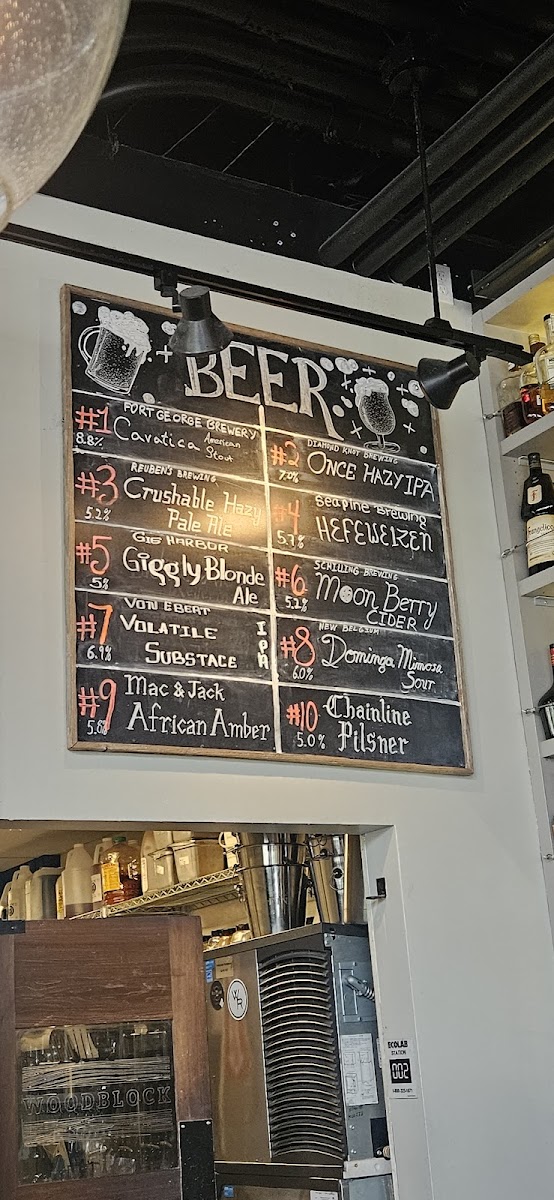 BEER
#1
FORT GEORGE BREWERY
8.8%
Cavatica American
Stout
#2
DIAMOND KNOT BREWING
7.0%
ONCE HAZY IPA
#3
REUBEN'S BREWING
5.2%
Crushable Hazy
Pale Ale
#4
Seapine Brewing
5.7%
HEFEWEIZEN
#5
GIG HARBOR
5%
Giggly Blonde
Ale
#6
SCHILLING BREWING
5.2%
Moon Berry
CIDER
#7
VON EBERT
6.9%
VOLATILE
SUBSTACE
IPA
#8
NEW BELGIUM
6.0%
Dominga Mimosa
Sour
#9
Mac & Jack
5.6%
African Amber
#10
Chainline
5.0%
Pilsner
Frangelico
WR
ECOLAB
STATION
002
WOODBLOCK